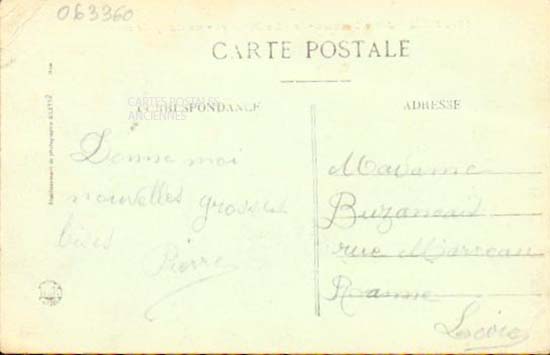 063360
CARTE POSTALE
CARTES POSTALES
ANCIENNES
CORRESPONDANCE
ADRESSE
Donne moi
nouvelles grosses
bises
Pierre
Madame
Buzancais
rue Marceau
Roanne
Loire
Etablissement de photographie